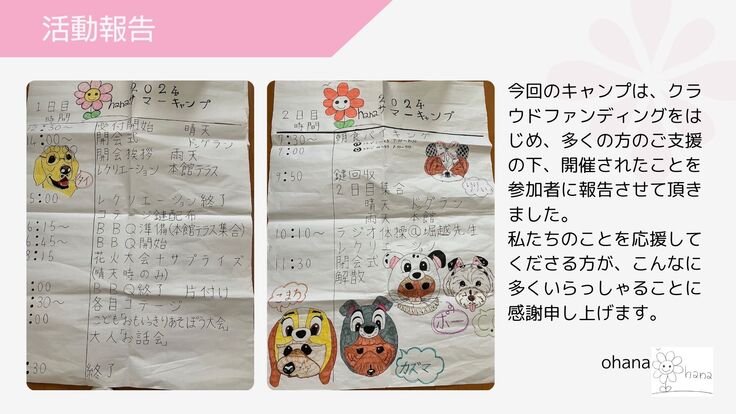 活動報告
2024
ohana サマーキャンプ
1日目
時間
12:30~ 受付開始 晴天
14:00~ 開会式 ドッグラン
開会挨拶 雨天
レクリエーション 本館テラス
ケイ
5:00 レクリエーション終了
コテージ鍵配布
6:15~ BBQ準備(本館テラス集合)
6:45~ BBQ開始
8:15 花火大会+サプライズ
(晴天時のみ)
:00 BBQ終了 片付け
:30~ 各自コテージ
:00 こども「おもいっきりあそぼう大会
大人「お話会
:30 終了
2024
ohana サマーキャンプ
2日目
時間
7:30~ 朝食バイキング
9:50 鍵回収
2日目集合
晴天 ドッグラン
雨天 本館
10:10~ ラジオ体操@堀越先生
レクリエーション
11:30 閉会式
解散
こまわ
ボー
カズマ
今回のキャンプは、クラ
ウドファンディングをは
じめ、多くの方のご支援
の下、開催されたことを
参加者に報告させて頂き
ました。
私たちのことを応援して
くださる方が、こんなに
多くいらっしゃることに
感謝申し上げます。
ohana
ohana